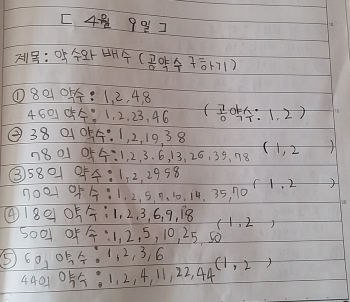 [ 4월 9일 ]
제목: 약수와 배수 (공약수 구하기)
① 8의 약수: 1, 2, 4, 8
46의 약수: 1, 2, 23, 46 (공약수: 1, 2)
② 38의 약수: 1, 2, 19, 38
78의 약수: 1, 2, 3, 6, 13, 26, 39, 78 (1, 2)
③ 58의 약수: 1, 2, 29 58
70의 약수: 1, 2, 5, 7, 10, 14, 35, 70 (1, 2)
④ 18의 약수: 1, 2, 3, 6, 9, 18
50의 약수: 1, 2, 5, 10, 25, 50 (1, 2)
⑤ 6의 약수: 1, 2, 3, 6
44의 약수: 1, 2, 4, 11, 22, 44 (1, 2)